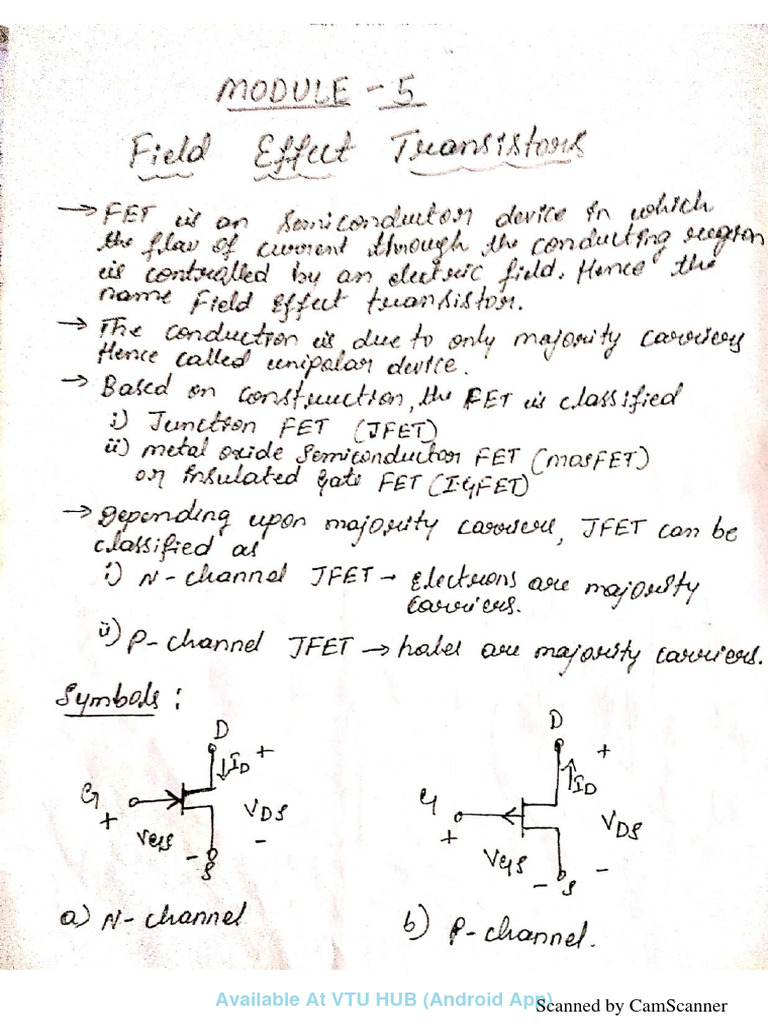 MODULE - 5
Field Effect Transistors
→ FET is an Semiconductor device in which
the flow of current through the conducting region
is controlled by an electric field. Hence the
name Field Effect transistor.
→ The conduction is due to only majority carriers
Hence called unipolar device.
→ Based on construction, the FET is classified
i) Junction FET (JFET)
ii) metal oxide Semiconductor FET (mosFET)
or Insulated Gate FET (IGFET)
→ Depending upon majority carriers, JFET can be
classified as
i) N-channel JFET → Electrons are majority
carriers.
ii) P-channel JFET → holes are majority carriers.
Symbols :
D
+
↓ID
G
+
VGS
VDS
-
-
S
D
+
↑ID
G
+
VGS
VDS
-
-
S
a) N-channel
b) P-channel.
Available At VTU HUB (Android App)
Scanned by CamScanner